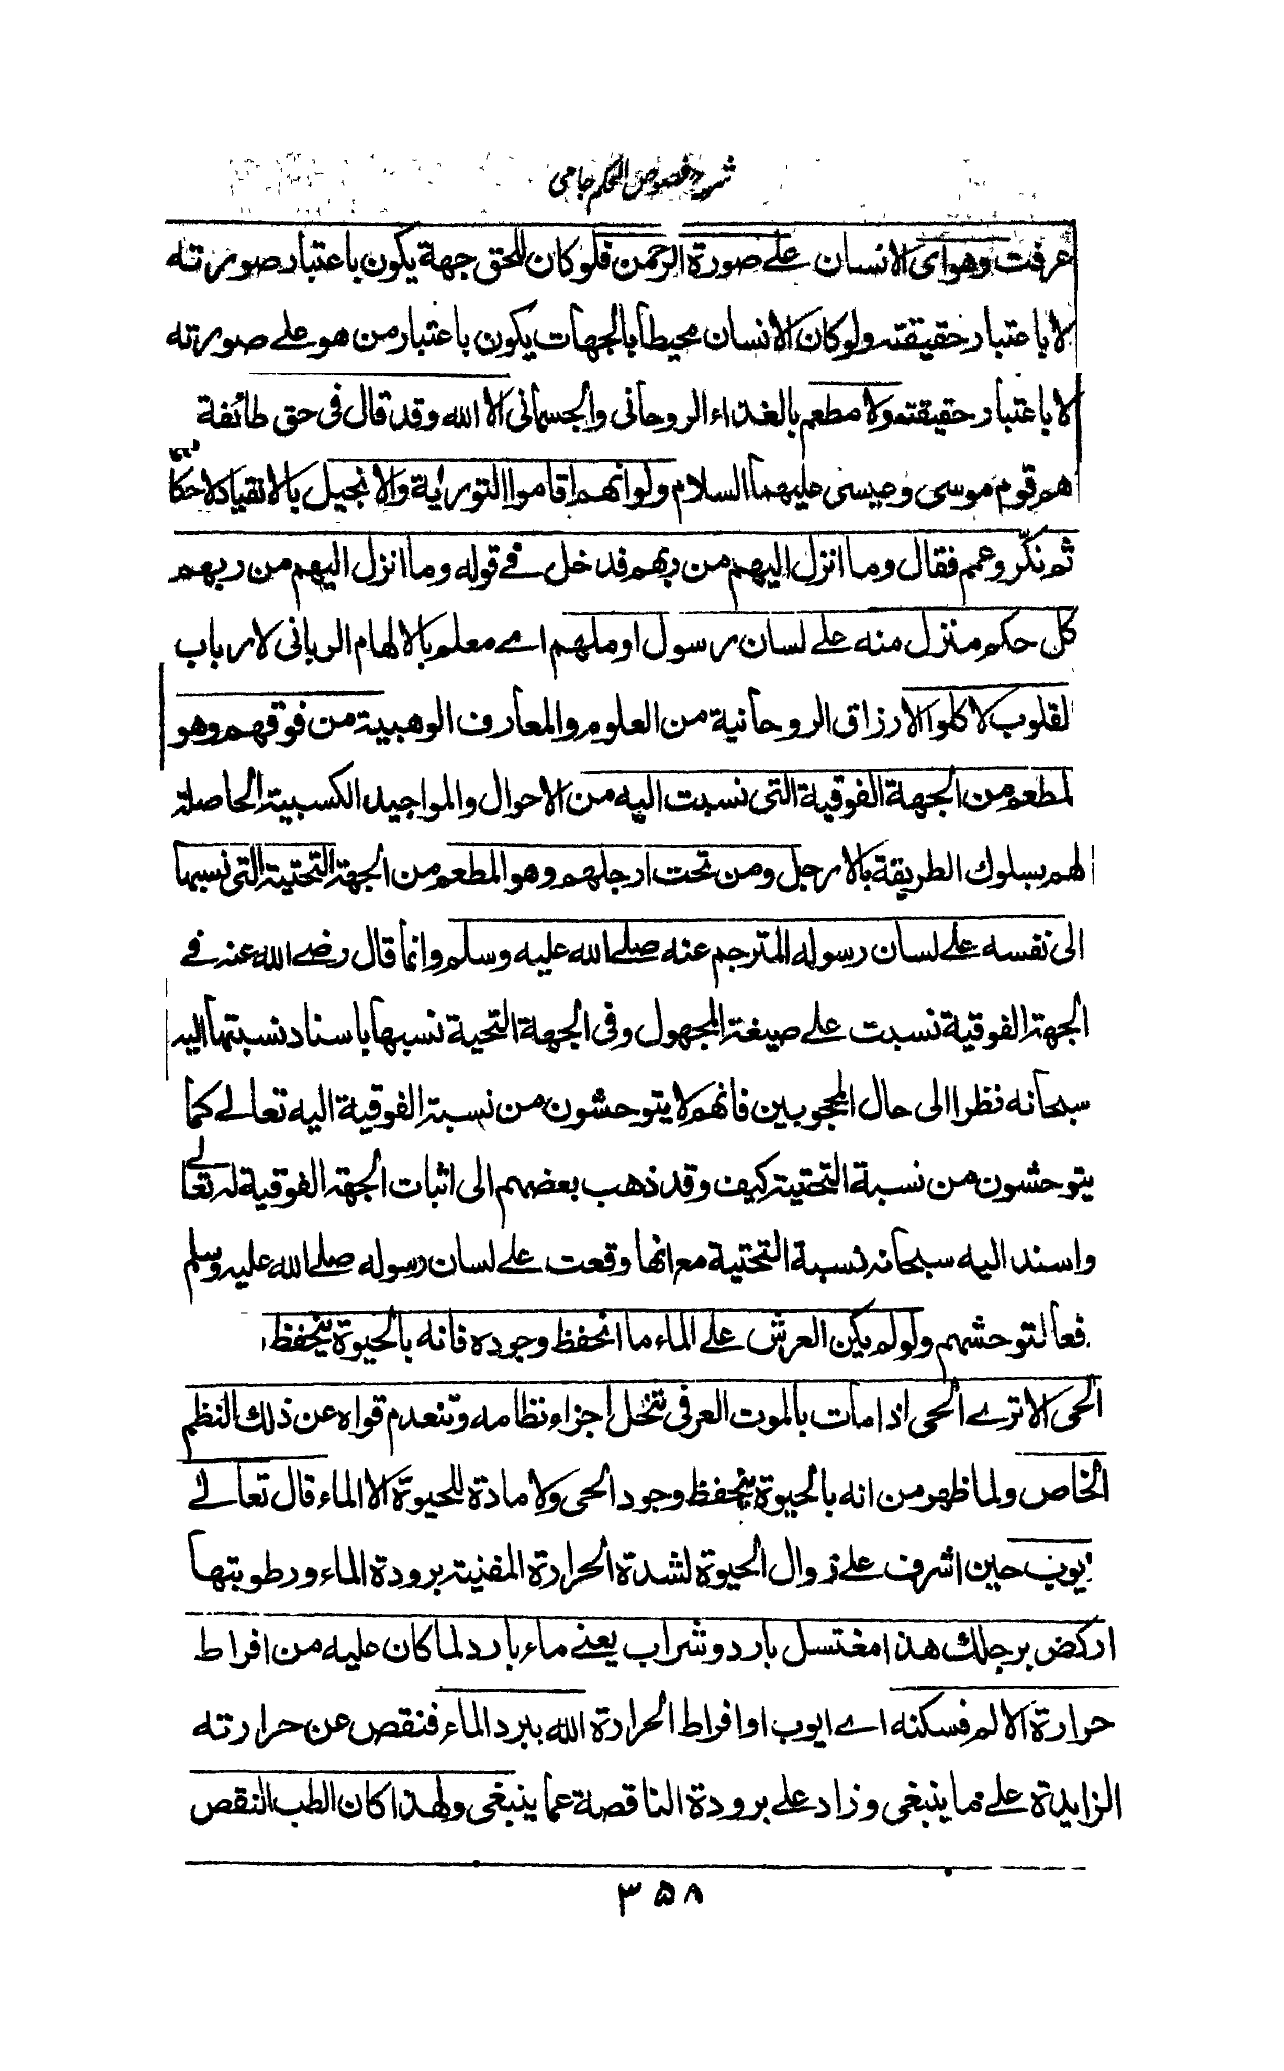 شرح فصوص الحكم جامى
عرفت وهو اى الانسان على صورة الرحمن فلو كان للحق جهة يكون باعتبار صورته
لا باعتبار حقيقته ولو كان الانسان محيطا بالجهات يكون باعتبار من هو على صورته
لا باعتبار حقيقته ولا مطعم بالغذاء الروحانى والجسمانى الا الله وقد قال فى حق طائفة
هم قوم موسى وعيسى عليهما السلام ولو انهم اقاموا التوراية والانجيل بالانقياد لاحكا
ثم نكر وعمم فقال وما انزل اليهم من ربهم فدخل فے قوله وما انزل اليهم من ربهم
كل حكم منزل منه على لسان رسول او ملهم اے معلم بالالهام الربانى لارباب
لقلوب لاكلوا الارزاق الروحانية من العلوم والمعارف الوهبية من فوقهم وهو
لمطعم من الجهة الفوقية التى نسبت اليه من الاحوال والمواجيد الكسبية الحاصلة
لهم بسلوك الطريقة بالارجل ومن تحت ارجلهم وهو المطعم من الجهة التحتية التى نسبها
الى نفسه على لسان رسوله المترجم عنه صلے الله عليه وسلم وانما قال رضے الله عنه فے
الجهة الفوقية نسبت على صيغة المجهول وفى الجهة التحية نسبها باسناد نسبتها اليه
سبحانه نظرا الى حال المحجوبين فانهم لا يتوحشون من نسبة الفوقية اليه تعالے كما
يتوحشون من نسبة التحتية كيف وقد ذهب بعضهم الى اثبات الجهة الفوقية له تعالے
واسند اليه سبحانه نسبة التحتية مع انها وقعت على لسان رسوله صلے الله عليه وسلم
فعا لتوحشهم ولو لم يكن العرش على الماء ما انحفظ وجوده فانه بالحيوة ينحفظ
الحى الا ترے الحى اذا مات بالموت العرفى تنحل اجزاء نظامه وتنعدم قواه عن ذلك النظم
الخاص ولما ظهر من انه بالحيوة ينحفظ وجود الحى ولا مادة للحيوة الا الماء قال تعالے
يوب حين اشرف على زوال الحيوة لشدة الحرارة المفنية برودة الماء ورطوبتها
اركض برجلك هذا مغتسل بارد وشراب يعنے ماء بارد لما كان عليه من افراط
حرارة الالم فسكنه اے ايوب او افراط الحرارة الله ببرد الماء فنقص عن حرارته
الزايدة على ما ينبغى وزاد على برودة الناقصة عما ينبغى ولهذا كان الطب النقص
۳۵۸